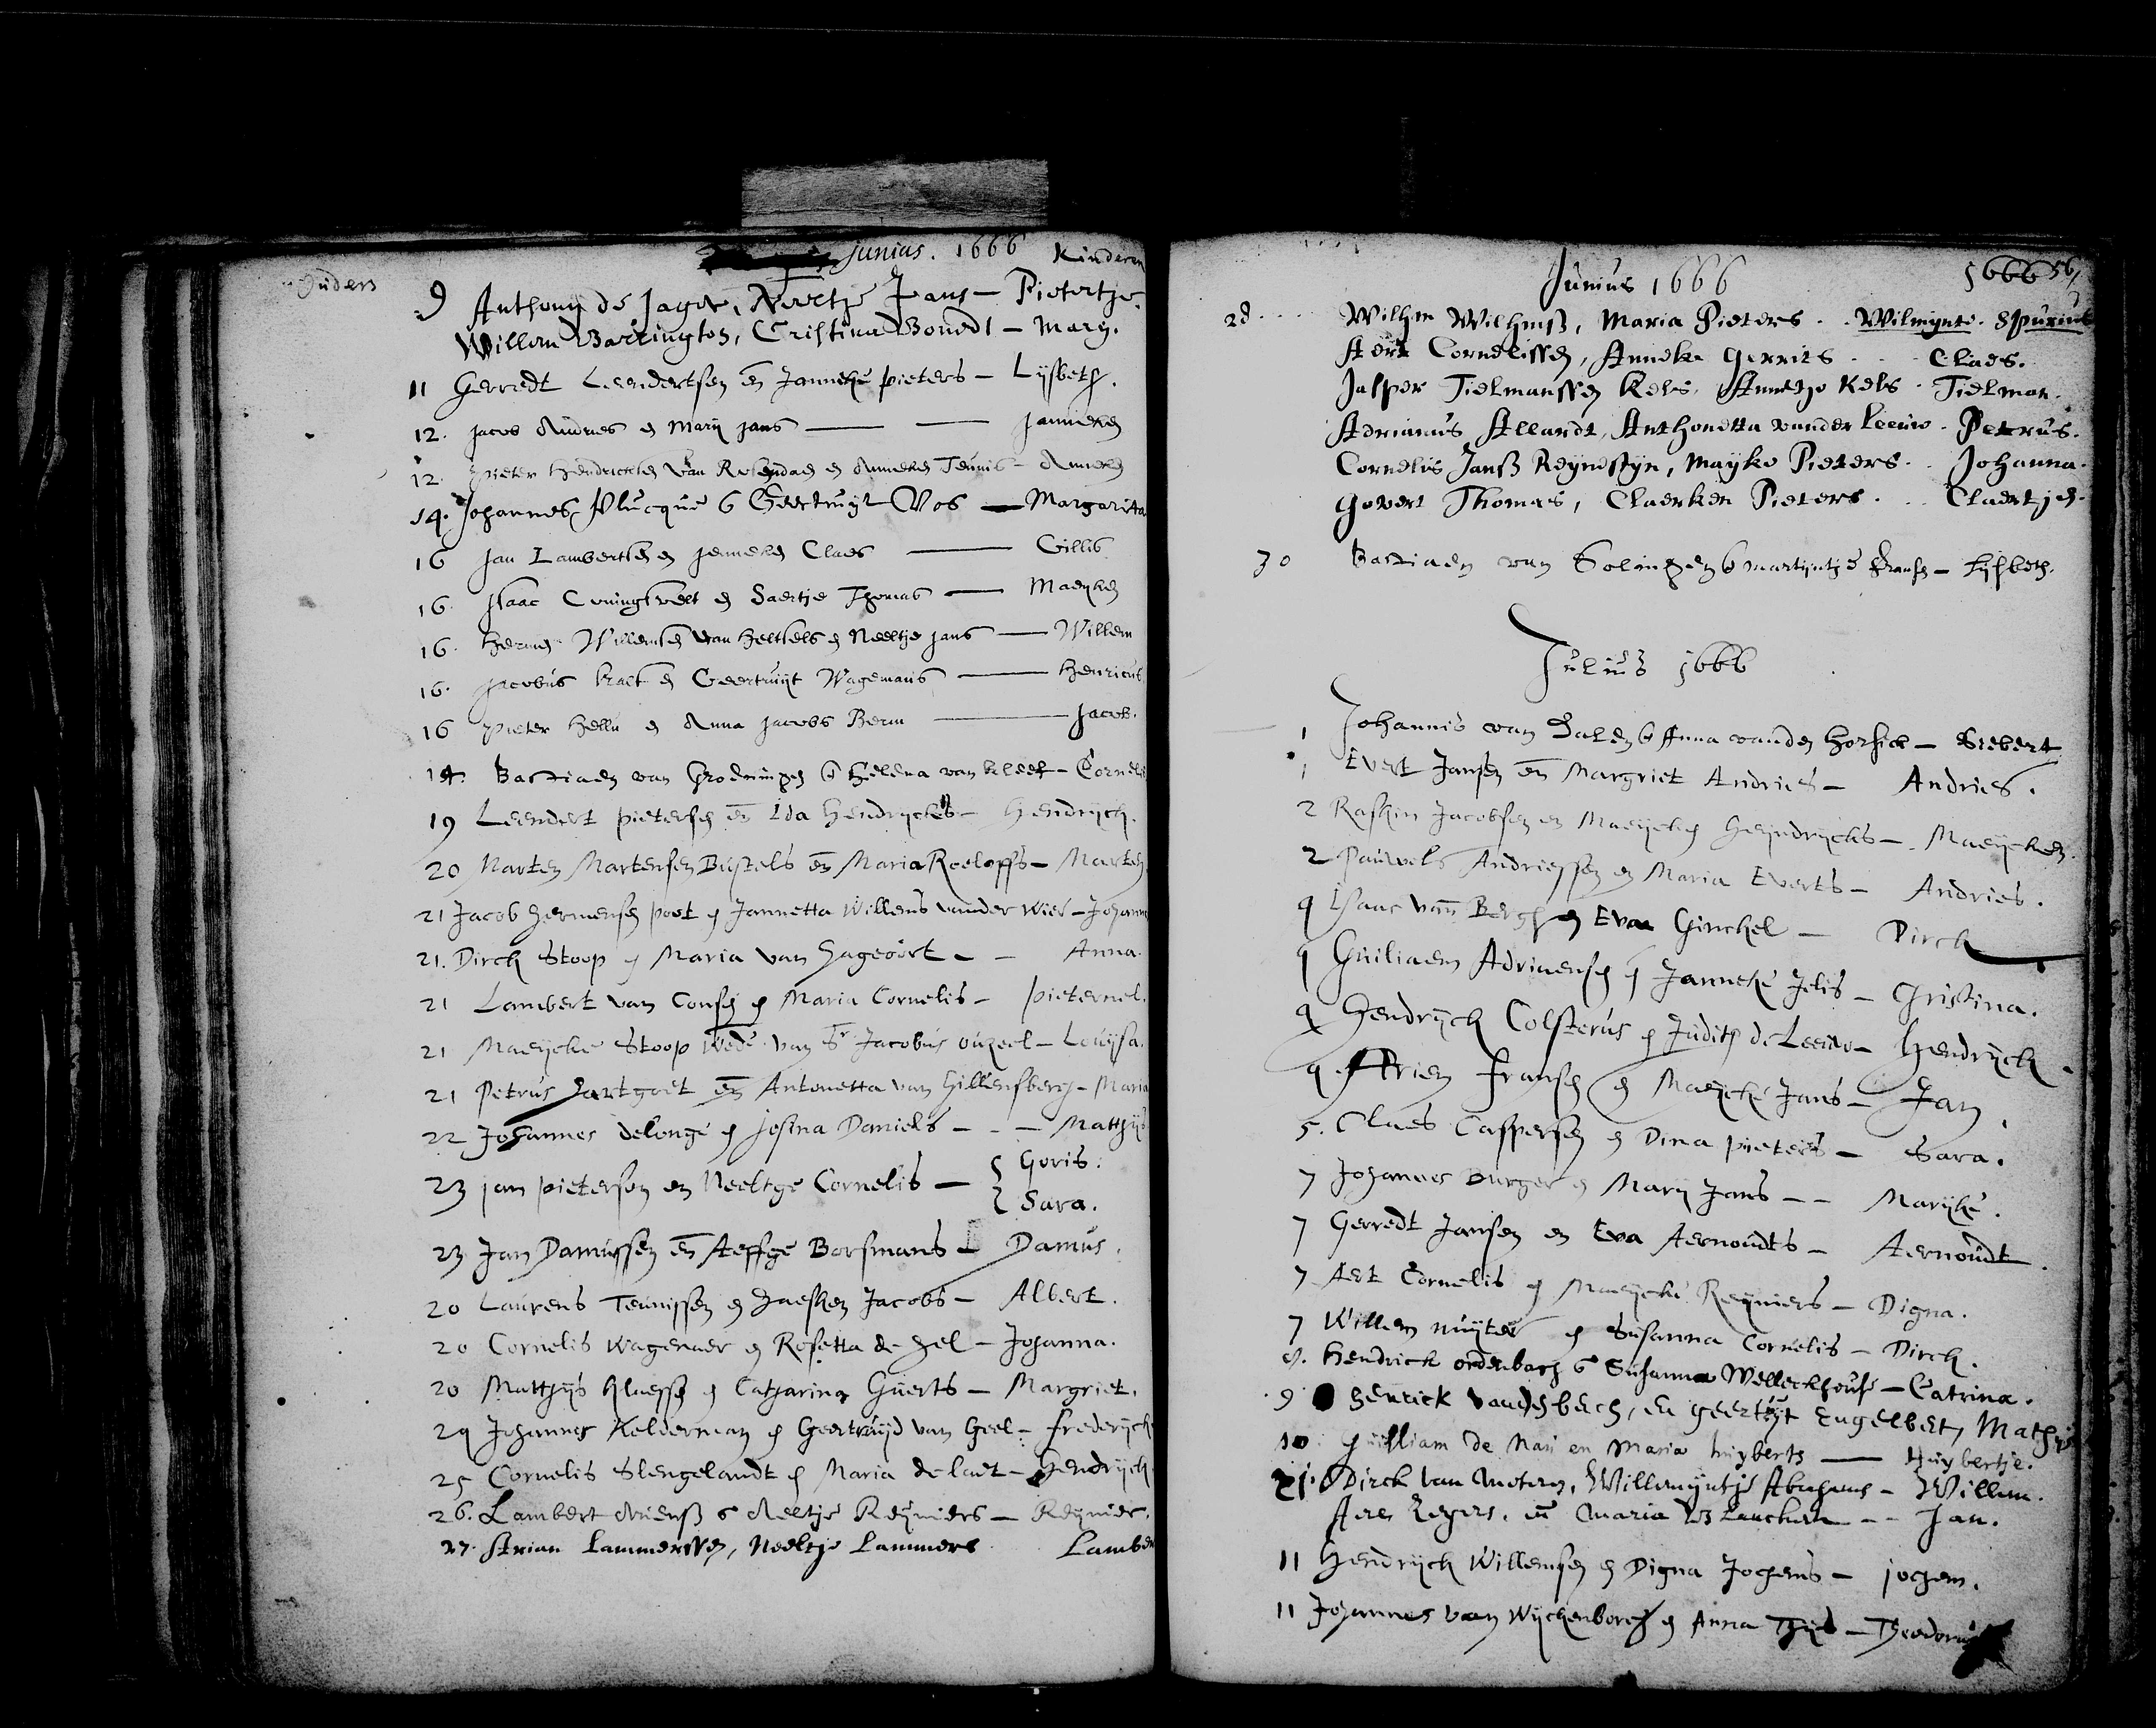 Ouders Junius. 1666 Kinderen
9 Anthony de Jager, Neeltje Jans — Pietertje.
Willem Barrington, Cristina Bonedt — Mary.
11 Gerredt Leendertsen en Janneke pieters — Lijsbeth.
12. Jacob Andries en Marij Jans — — Janneken
12. Pieter Hendricksen van Rosendael en Anneken Teunis — Anneken
14. Johannes Plucque & Geertruijt Vos — Margarita
16 Jan Lambertsen en Jenneken Claes — Gillis
16. Isaac Coningsvelt en Saertje Thomas — Maeyken
16. Hermen Willemsen van Heltsels en Neeltje Jans — Willem
16. Jacobus kraet en Geertruijt Wagemans — Henricus
16 Pieter Hellu en Anna Jacobs Berm — Jacob.
14. Bastiaen van Groeninge & Helena van kleef — Cornelis
19 Leendert pietersen en Ida Hendrycks — Hendryck.
20 Marten Martensen Bustels en Maria Roeloffs — Marten
21 Jacob Hermensen poot en Jannetta Willems vander Wiel — Johanne
21. Dirck Stoop en Maria van Hageoort — — Anna.
21 Lambert van Consen en Maria Cornelis — pieternel.
21 Maeijcke Stoop Wede. van Sr. Jacobus ouzeel — Louijsa.
21 Petrus Hartgoet en Antonetta van Hillensberg — Maria
22 Johannes delonge en Josina Daniels — — — Matthijs
23 jan pietersen en Neeltge Cornelis — { Goris.
{ Sara.
23 Jan Damissen en Aeffge Borsmans — Damus.
20 Laurens Teunissen en Jaesken Jacobs — Albert.
20 Cornelis Wagenaer en Rosetta de hel — Johanna.
20 Matthijs Klaessen en Catharina Guerts — Margriet.
24 Johannes Kelderman en Geertruijd van Geel — frederijck
25 Cornelis Slengelandt en Maria de laet — Hendrijck
26. Lambert Ariensz & Aeltje Reyniers — Reynier.
27. Arian Lammerssen, Neeltje Lammers Lamber
Junius 1666 1666 56
28 .... Wilhem Wilhemsz, Maria Pieters . . Wilmynte. Spurius
Aert Cornelissen, Anneke Gerrits . . Claes.
Jasper Tielmanssen Kels, Annetje Kels . Tielman.
Adrianus Allardt, Anthonetta vander Leeuw . Petrus.
Cornelis Jansz Reynestyn, Mayke Pieters . . Johanna.
Govert Thomas, Claerken Pieters . . . Claertje.
30 Bastiaen van Solingen & martijntje Fransen — Lijsbeth.
Julius 1666
1 Johannis van Dalen & Anna vanden Horsick — Siebert
1 Evert Jansen en Margriet Andries — Andries.
2 Raskin Jacobsen en Maeijcken Heyndrycks — Maeijcken.
2 Pauwels Andriessen en Maria Everts — Andries.
4 Isaac van Bergh en Eva Ginckel — Dirck
4 Guiliaem Adriaensen en Janneke Jelis — Christina.
4 Hendrijck Colsterus en Judith de Leeuw — Hendrijck.
4 Arien fransen en Maeijcke Jans — Jan
5. Claes Caspersen en Dina pieters — Sara.
7 Johannes Burger en Marij Jans — — Marijke.
7 Gerredt Jansen en Eva Aernoudts — Aernoudt.
7 Aert Cornelis en Maeijcke Reijniers — Digna.
7 Willem muijter en Susanna Cornelis — Dirck.
9. Hendrick ordenbach & Susanna Welleckhouse — Catrina.
9 Henrick vandenbech, en geertruyt Engelbert, Mathys
10. Guilliam de Nan en Maria huyberts — Huybertje.
11. Dirck van Meteren, Willemijntje Abrahams — Willem.
Aert Zegers. en Maria Lauckert — — Jan.
11 Hendrijck Willemsen en Digna Jochems — jochem.
11 Johannes van Wijckenborch en Anna Thijs — Theodorus